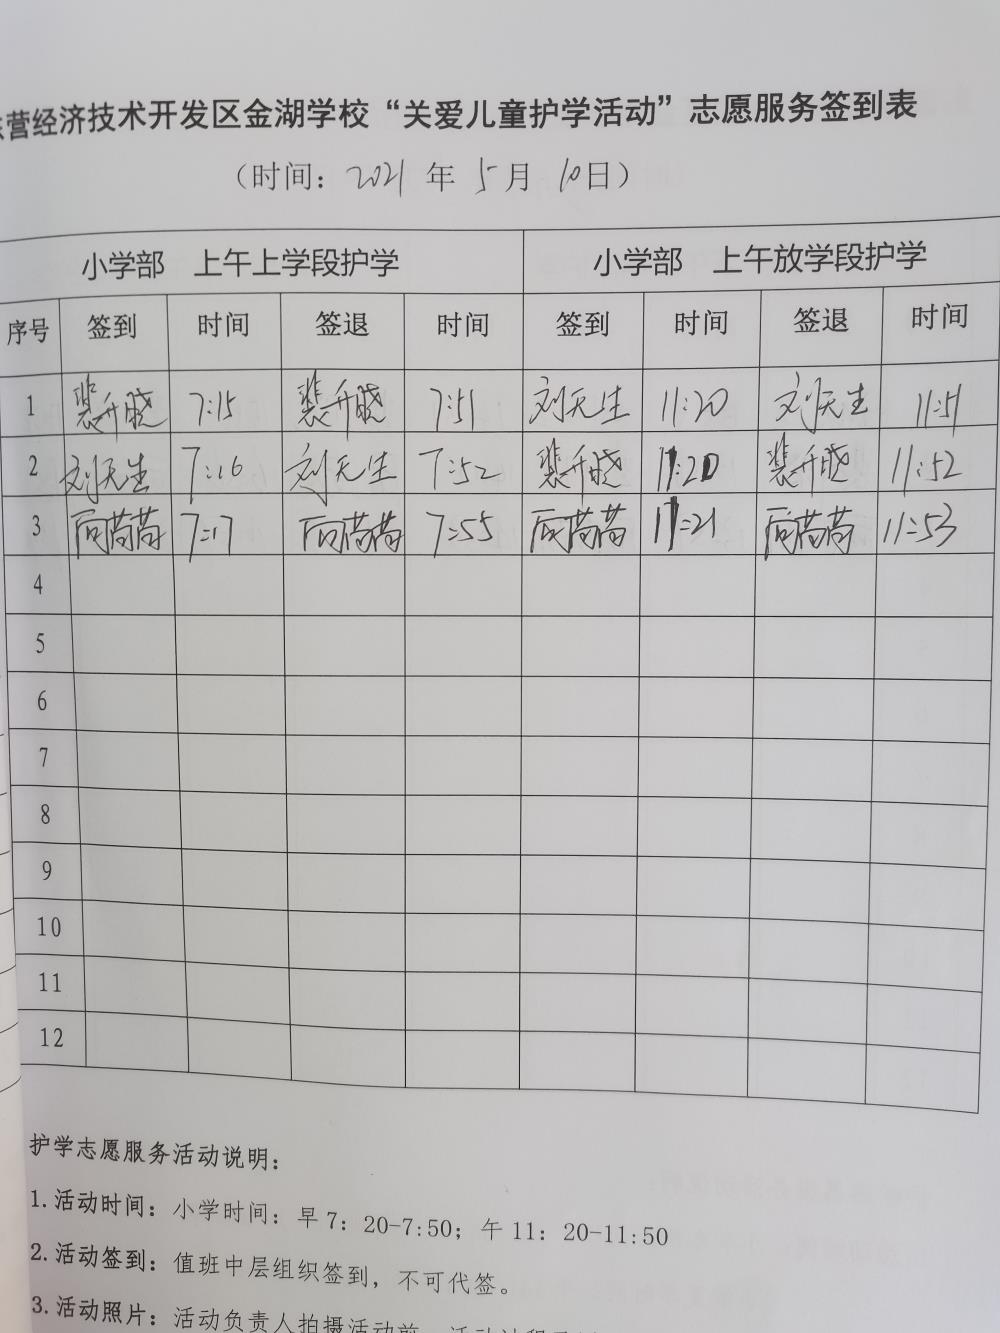 东营经济技术开发区金湖学校“关爱儿童护学活动”志愿服务签到表
（时间：2021 年 5 月 10日）
小学部 上午上学段护学 小学部 上午放学段护学
序号 签到 时间 签退 时间 签到 时间 签退 时间
1 裴升晓 7:15 裴升晓 7:51 刘天生 11:20 刘天生 11:51
2 刘天生 7:16 刘天生 7:52 裴升晓 11:20 裴升晓 11:52
3 7:17 7:55 11:21 11:53
4
5
6
7
8
9
10
11
12
护学志愿服务活动说明：
1.活动时间：小学时间：早7：20-7:50；午11：20-11:50
2.活动签到：值班中层组织签到，不可代签。
3.活动照片：活动负责人拍摄活动前